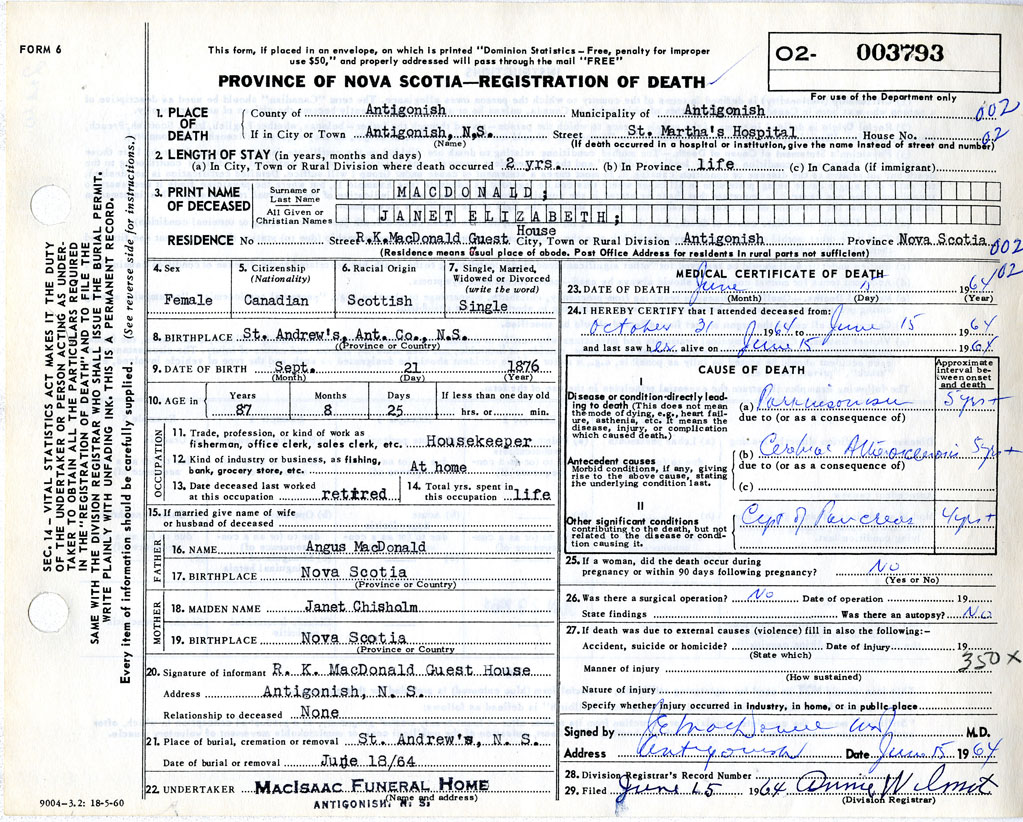 FORM 6
This form, if placed in an envelope, on which is printed "Dominion Statistics – Free, penalty for improper
use $50," and properly addressed will pass through the mail "FREE"
PROVINCE OF NOVA SCOTIA—REGISTRATION OF DEATH
02- 003793
For use of the Department only
1. PLACE OF DEATH
County of Antigonish Municipality of Antigonish 002
If in City or Town Antigonish, N.S. Street St. Martha's Hospital House No. 02
(Name) (If death occurred in a hospital or institution, give the name instead of street and number)
2. LENGTH OF STAY (in years, months and days)
(a) In City, Town or Rural Division where death occurred 2 yrs. (b) In Province life (c) In Canada (if immigrant)
3. PRINT NAME OF DECEASED
Surname or Last Name MACDONALD;
All Given or Christian Names JANET ELIZABETH;
RESIDENCE No Street R.K.MacDonald Guest House City, Town or Rural Division Antigonish Province Nova Scotia 002
(Residence means usual place of abode. Post Office Address for residents in rural parts not sufficient) 02
4. Sex Female
5. Citizenship (Nationality) Canadian
6. Racial Origin Scottish
7. Single, Married, Widowed or Divorced (write the word) Single
8. BIRTHPLACE St. Andrew's, Ant. Co., N.S.
(Province or Country)
9. DATE OF BIRTH Sept. 21 1876
(Month) (Day) (Year)
10. AGE in Years 87 Months 8 Days 25 If less than one day old hrs. or min.
OCCUPATION
11. Trade, profession, or kind of work as
fisherman, office clerk, sales clerk, etc. Housekeeper
12. Kind of industry or business, as fishing,
bank, grocery store, etc. At home
13. Date deceased last worked
at this occupation retired
14. Total yrs. spent in
this occupation life
15. If married give name of wife
or husband of deceased
FATHER
16. NAME Angus MacDonald
17. BIRTHPLACE Nova Scotia
(Province or Country)
MOTHER
18. MAIDEN NAME Janet Chisholm
19. BIRTHPLACE Nova Scotia
(Province or Country
20. Signature of informant R. K. MacDonald Guest House
Address Antigonish, N. S.
Relationship to deceased None
21. Place of burial, cremation or removal St. Andrew's, N. S.
Date of burial or removal June 18/64
22. UNDERTAKER MACISAAC FUNERAL HOME
(Name and address)
ANTIGONISH, N. S.
9004–3.2: 18-5-60
MEDICAL CERTIFICATE OF DEATH
23. DATE OF DEATH June 1964
(Month) (Day) (Year)
24. I HEREBY CERTIFY that I attended deceased from:
October 31 1964 to June 15 1964
and last saw her alive on June 15 1964
CAUSE OF DEATH
Approximate interval between onset and death
I
Disease or condition directly leading to death (This does not mean the mode of dying, e.g., heart failure, asthenia, etc. It means the disease, injury, or complication which caused death.)
(a) Parkinsonism 5 yrs+
due to (or as a consequence of)
Antecedent causes
Morbid conditions, if any, giving rise to the above cause, stating the underlying condition last.
(b) Cerebral Atherosclerosis 5 yrs+
due to (or as a consequence of)
(c)
II
Other significant conditions
contributing to the death, but not related to the disease or condition causing it.
of Pancreas 4 yrs+
25. If a woman, did the death occur during
pregnancy or within 90 days following pregnancy? No
(Yes or No)
26. Was there a surgical operation? No Date of operation 19
State findings Was there an autopsy? No
27. If death was due to external causes (violence) fill in also the following:–
Accident, suicide or homicide? Date of injury 19
(State which)
350 X
Manner of injury
(How sustained)
Nature of injury
Specify whether injury occurred in industry, in home, or in public place
Signed by M.D.
Address Antigonish Date June 15 1964
28. Division Registrar's Record Number
29. Filed June 15 1964 Annie Wilmot
(Division Registrar)
SEC. 14 – VITAL STATISTICS ACT MAKES IT THE DUTY
OF THE UNDERTAKER OR PERSON ACTING AS UNDER-
TAKER TO OBTAIN ALL THE PARTICULARS REQUIRED
IN THE "REGISTRATION OF DEATH" AND TO FILE THE
SAME WITH THE DIVISION REGISTRAR WHO SHALL ISSUE THE BURIAL PERMIT.
WRITE PLAINLY WITH UNFADING INK. THIS IS A PERMANENT RECORD.
Every item of information should be carefully supplied. (See reverse side for instructions.)